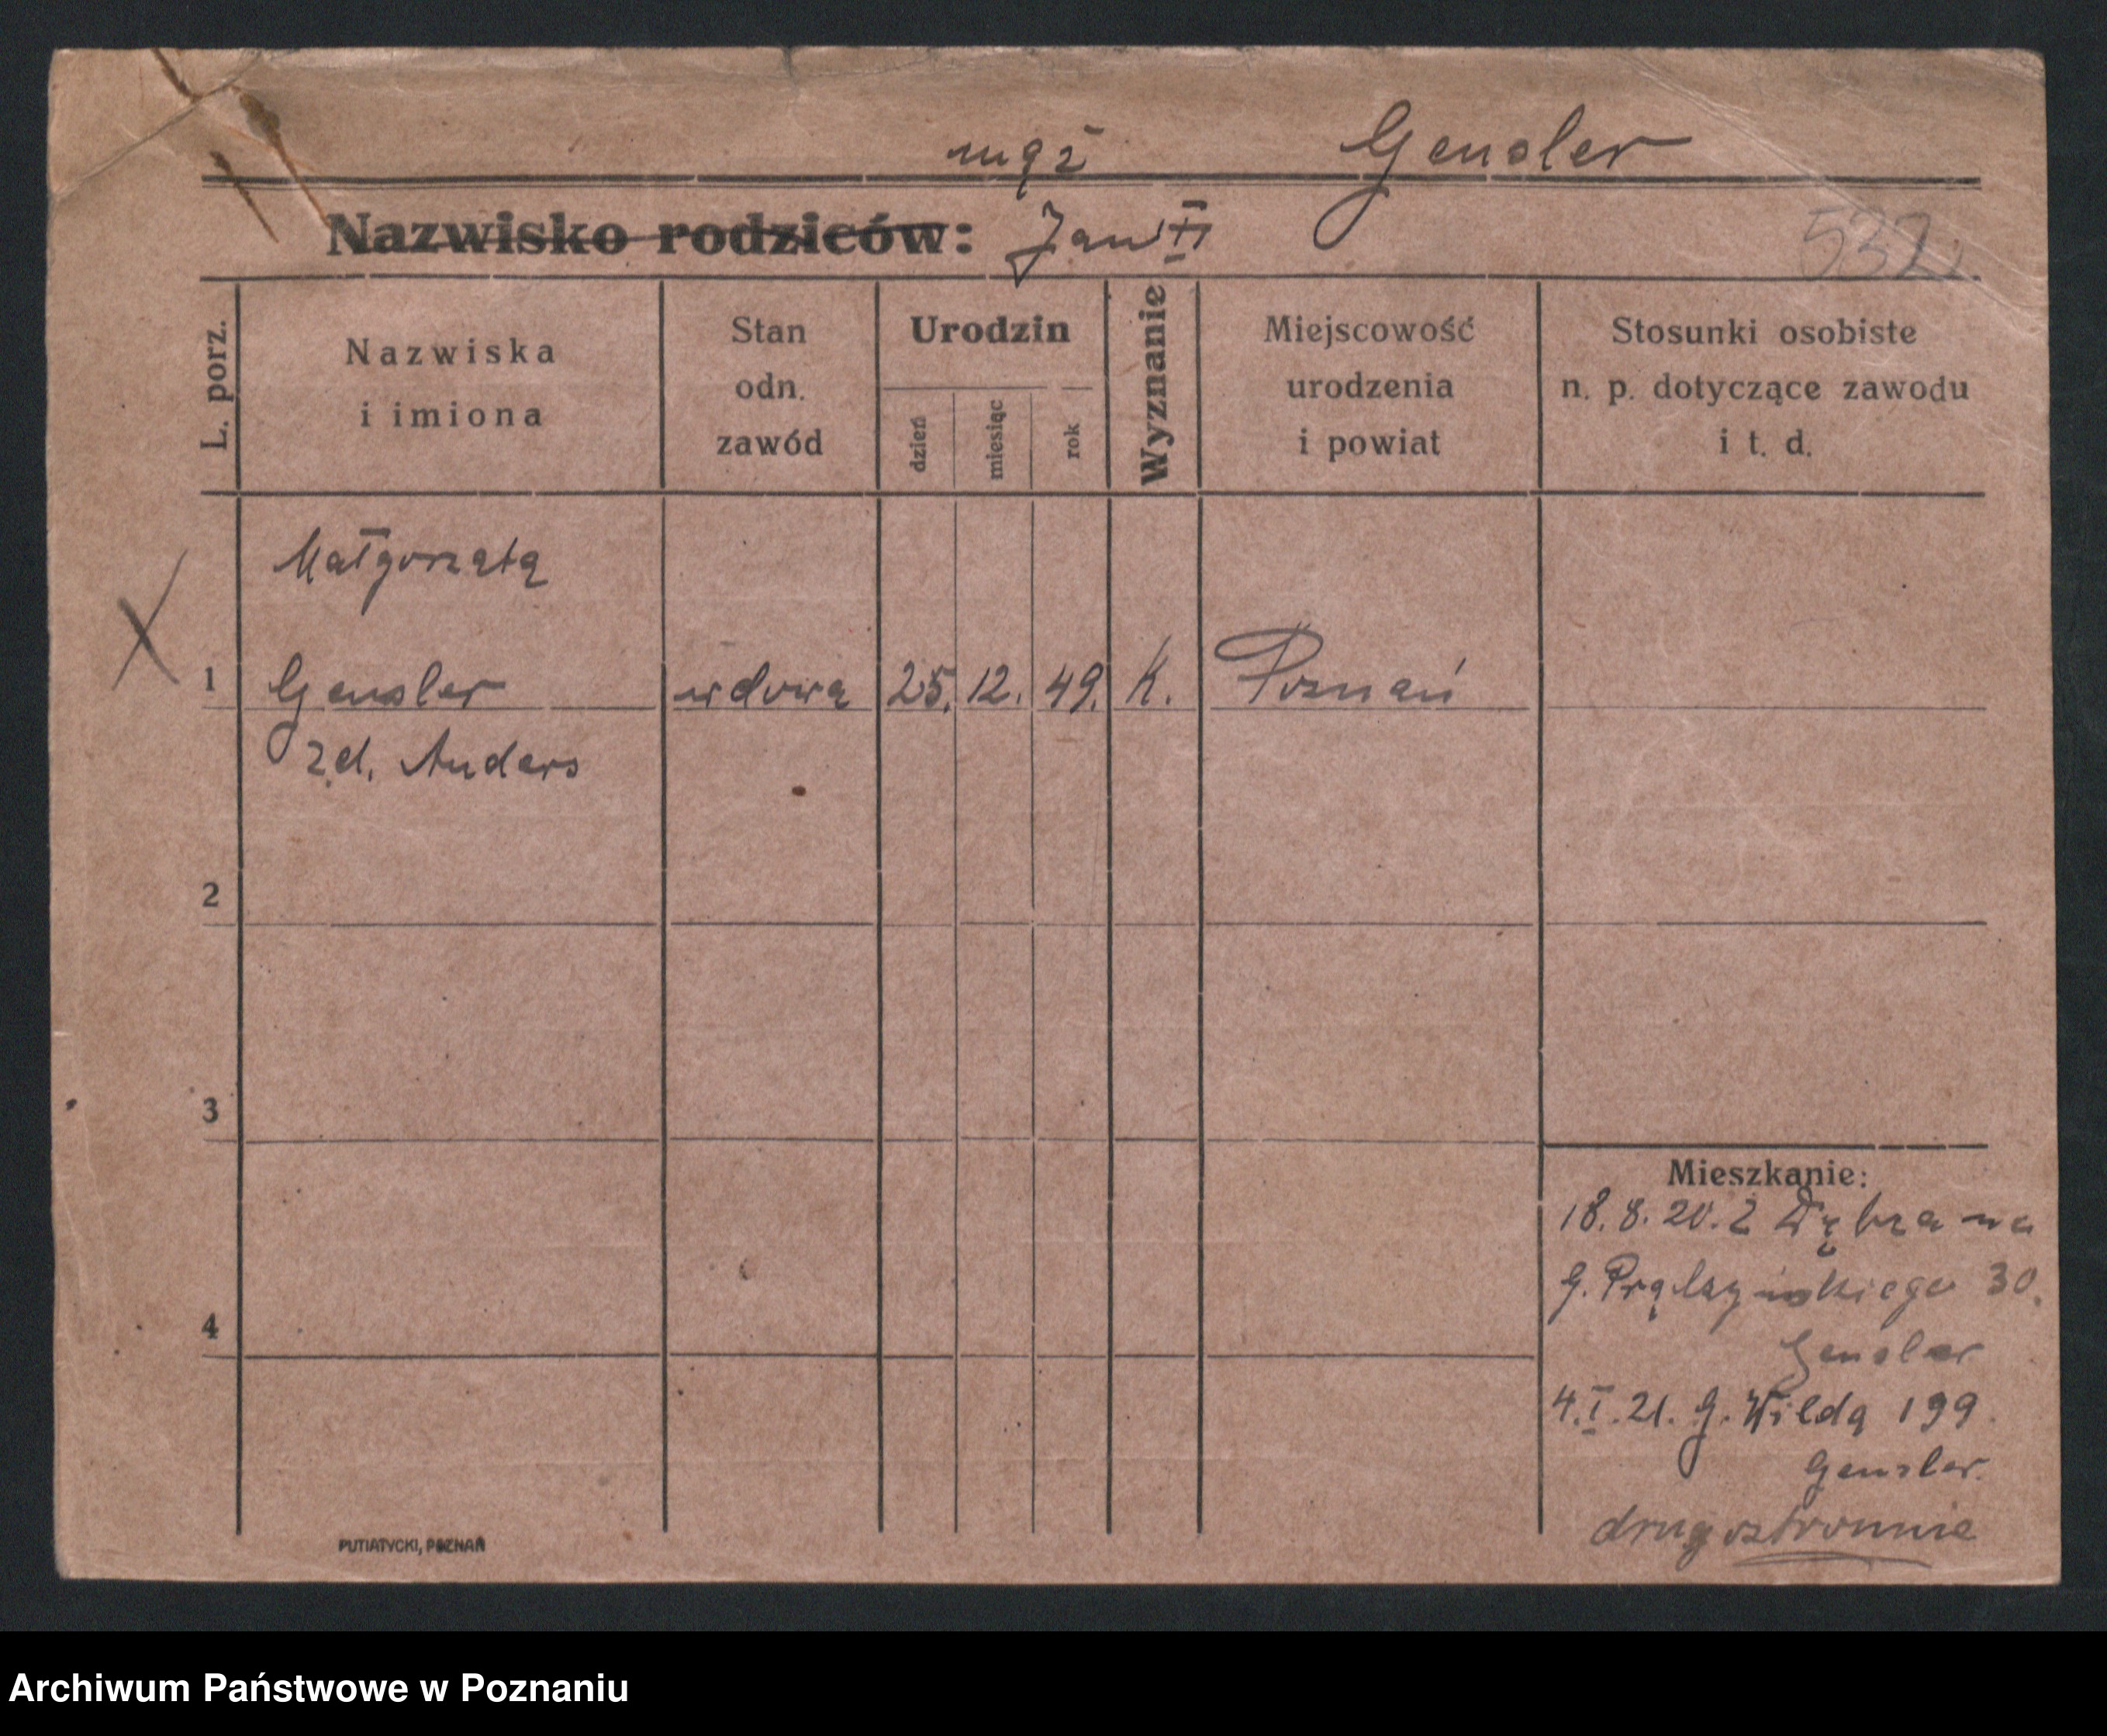 mąż Gensler
Nazwisko rodziców: Jan
532
L. porz.
Nazwiska
i imiona
Stan
odn.
zawód
Urodzin
dzień
miesiąc
rok
Wyznanie
Miejscowość
urodzenia
i powiat
Stosunki osobiste
n. p. dotyczące zawodu
i t. d.
Małgorzata
X 1 Gensler wdowa 25. 12. 49. K. Poznań
zd. Anders
2
3
4
Mieszkanie:
18. 8. 20. z
G. Prądzyńskiego 30.
Gensler
4. I. 21. G. Wilda 199.
Gensler.
drugostronnie
PUTIATYCKI, POZNAŃ
Archiwum Państwowe w Poznaniu